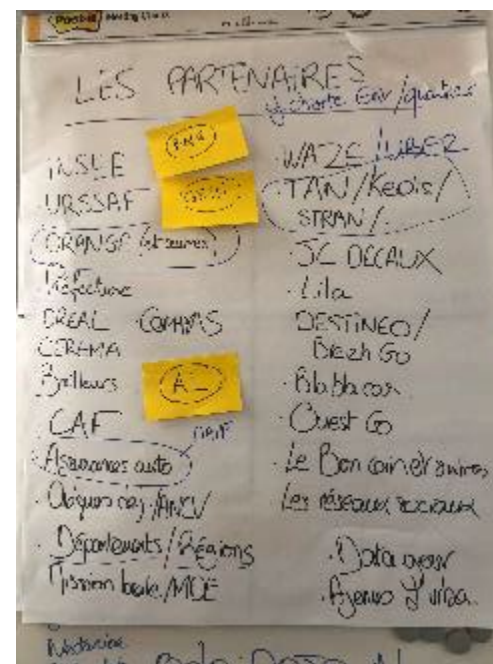 Post-it
LES PARTENAIRES
charte Env/quartier
INSEE
URSSAF
ORANGE (et autres)
Préfecture
DREAL COMMS
CEREMA
Bailleurs
CAF
MAIF
Assurances auto
/ANCV
Départements/Régions
Mission locale/MDE
WAZE/UBER
TAN/Keolis/
STRAN/
JC DECAUX
Lila
DESTINEO/
Breizh Go
Blablacar
Ouest Go
Le Bon coin et autres
Les réseaux sociaux
Data
Agence d'urba